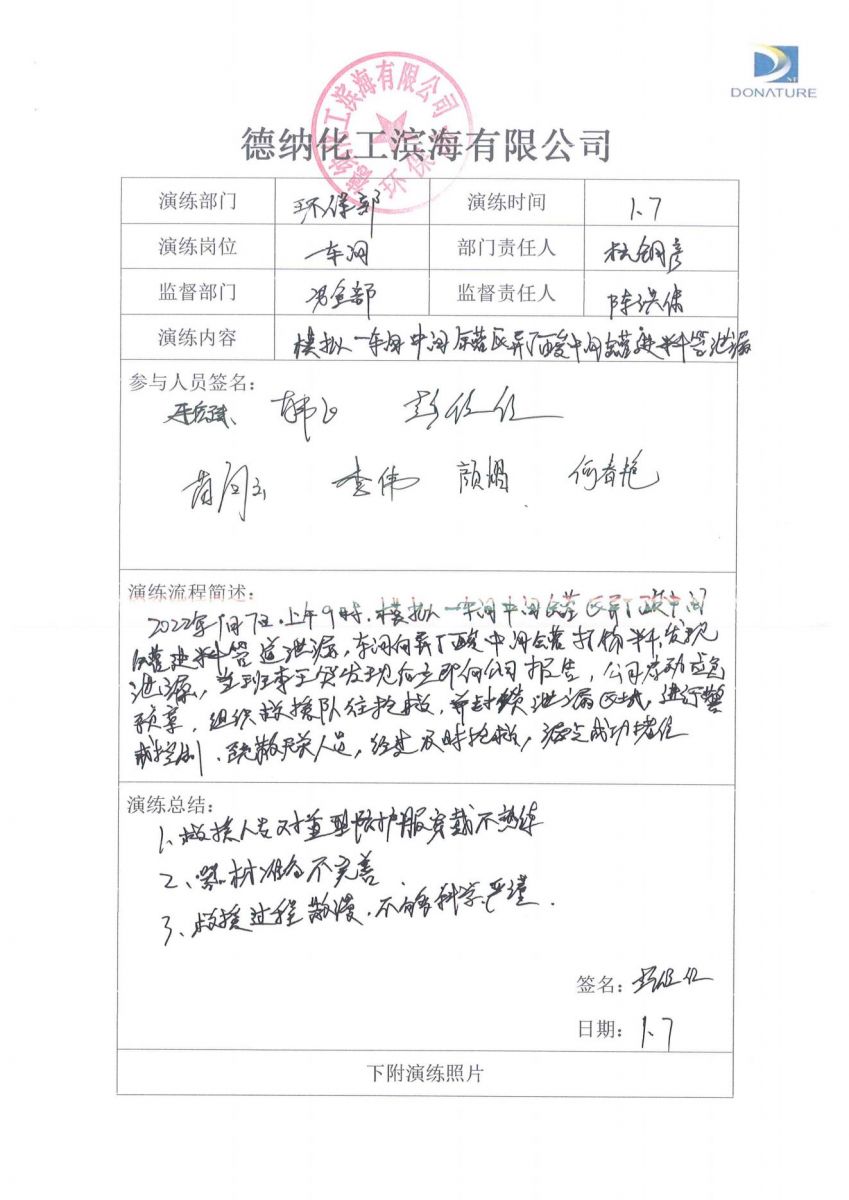 DONATURE
德纳化工滨海有限公司
德纳化工滨海有限公司
环保
演练部门 环保部 演练时间 1.7
演练岗位 一车间 部门责任人
监督部门 监督责任人 陈洪保
演练内容 模拟一车间中间罐区异丁酸中间罐进料管泄漏
参与人员签名:
韩飞 彭任任
李伟 颜娟 何春艳
演练流程简述:
2022年1月7日上午9时,模拟一车间中间罐区异丁酸中间
罐进料管道泄漏,车间向异丁酸中间罐打物料,发现
泄漏,当班李工发现后立即向公司报告,公司启动应急
预案,组织救援队伍抢救,并封锁泄漏区域,进行警
戒控制、疏散无关人员,经过及时抢救,漏点成功堵住
演练总结:
1、救援人员对重型防护服穿戴不熟练
2、器材准备不完善
3、救援过程散漫,不够科学严谨.
签名: 彭任任
日期: 1.7
下附演练照片